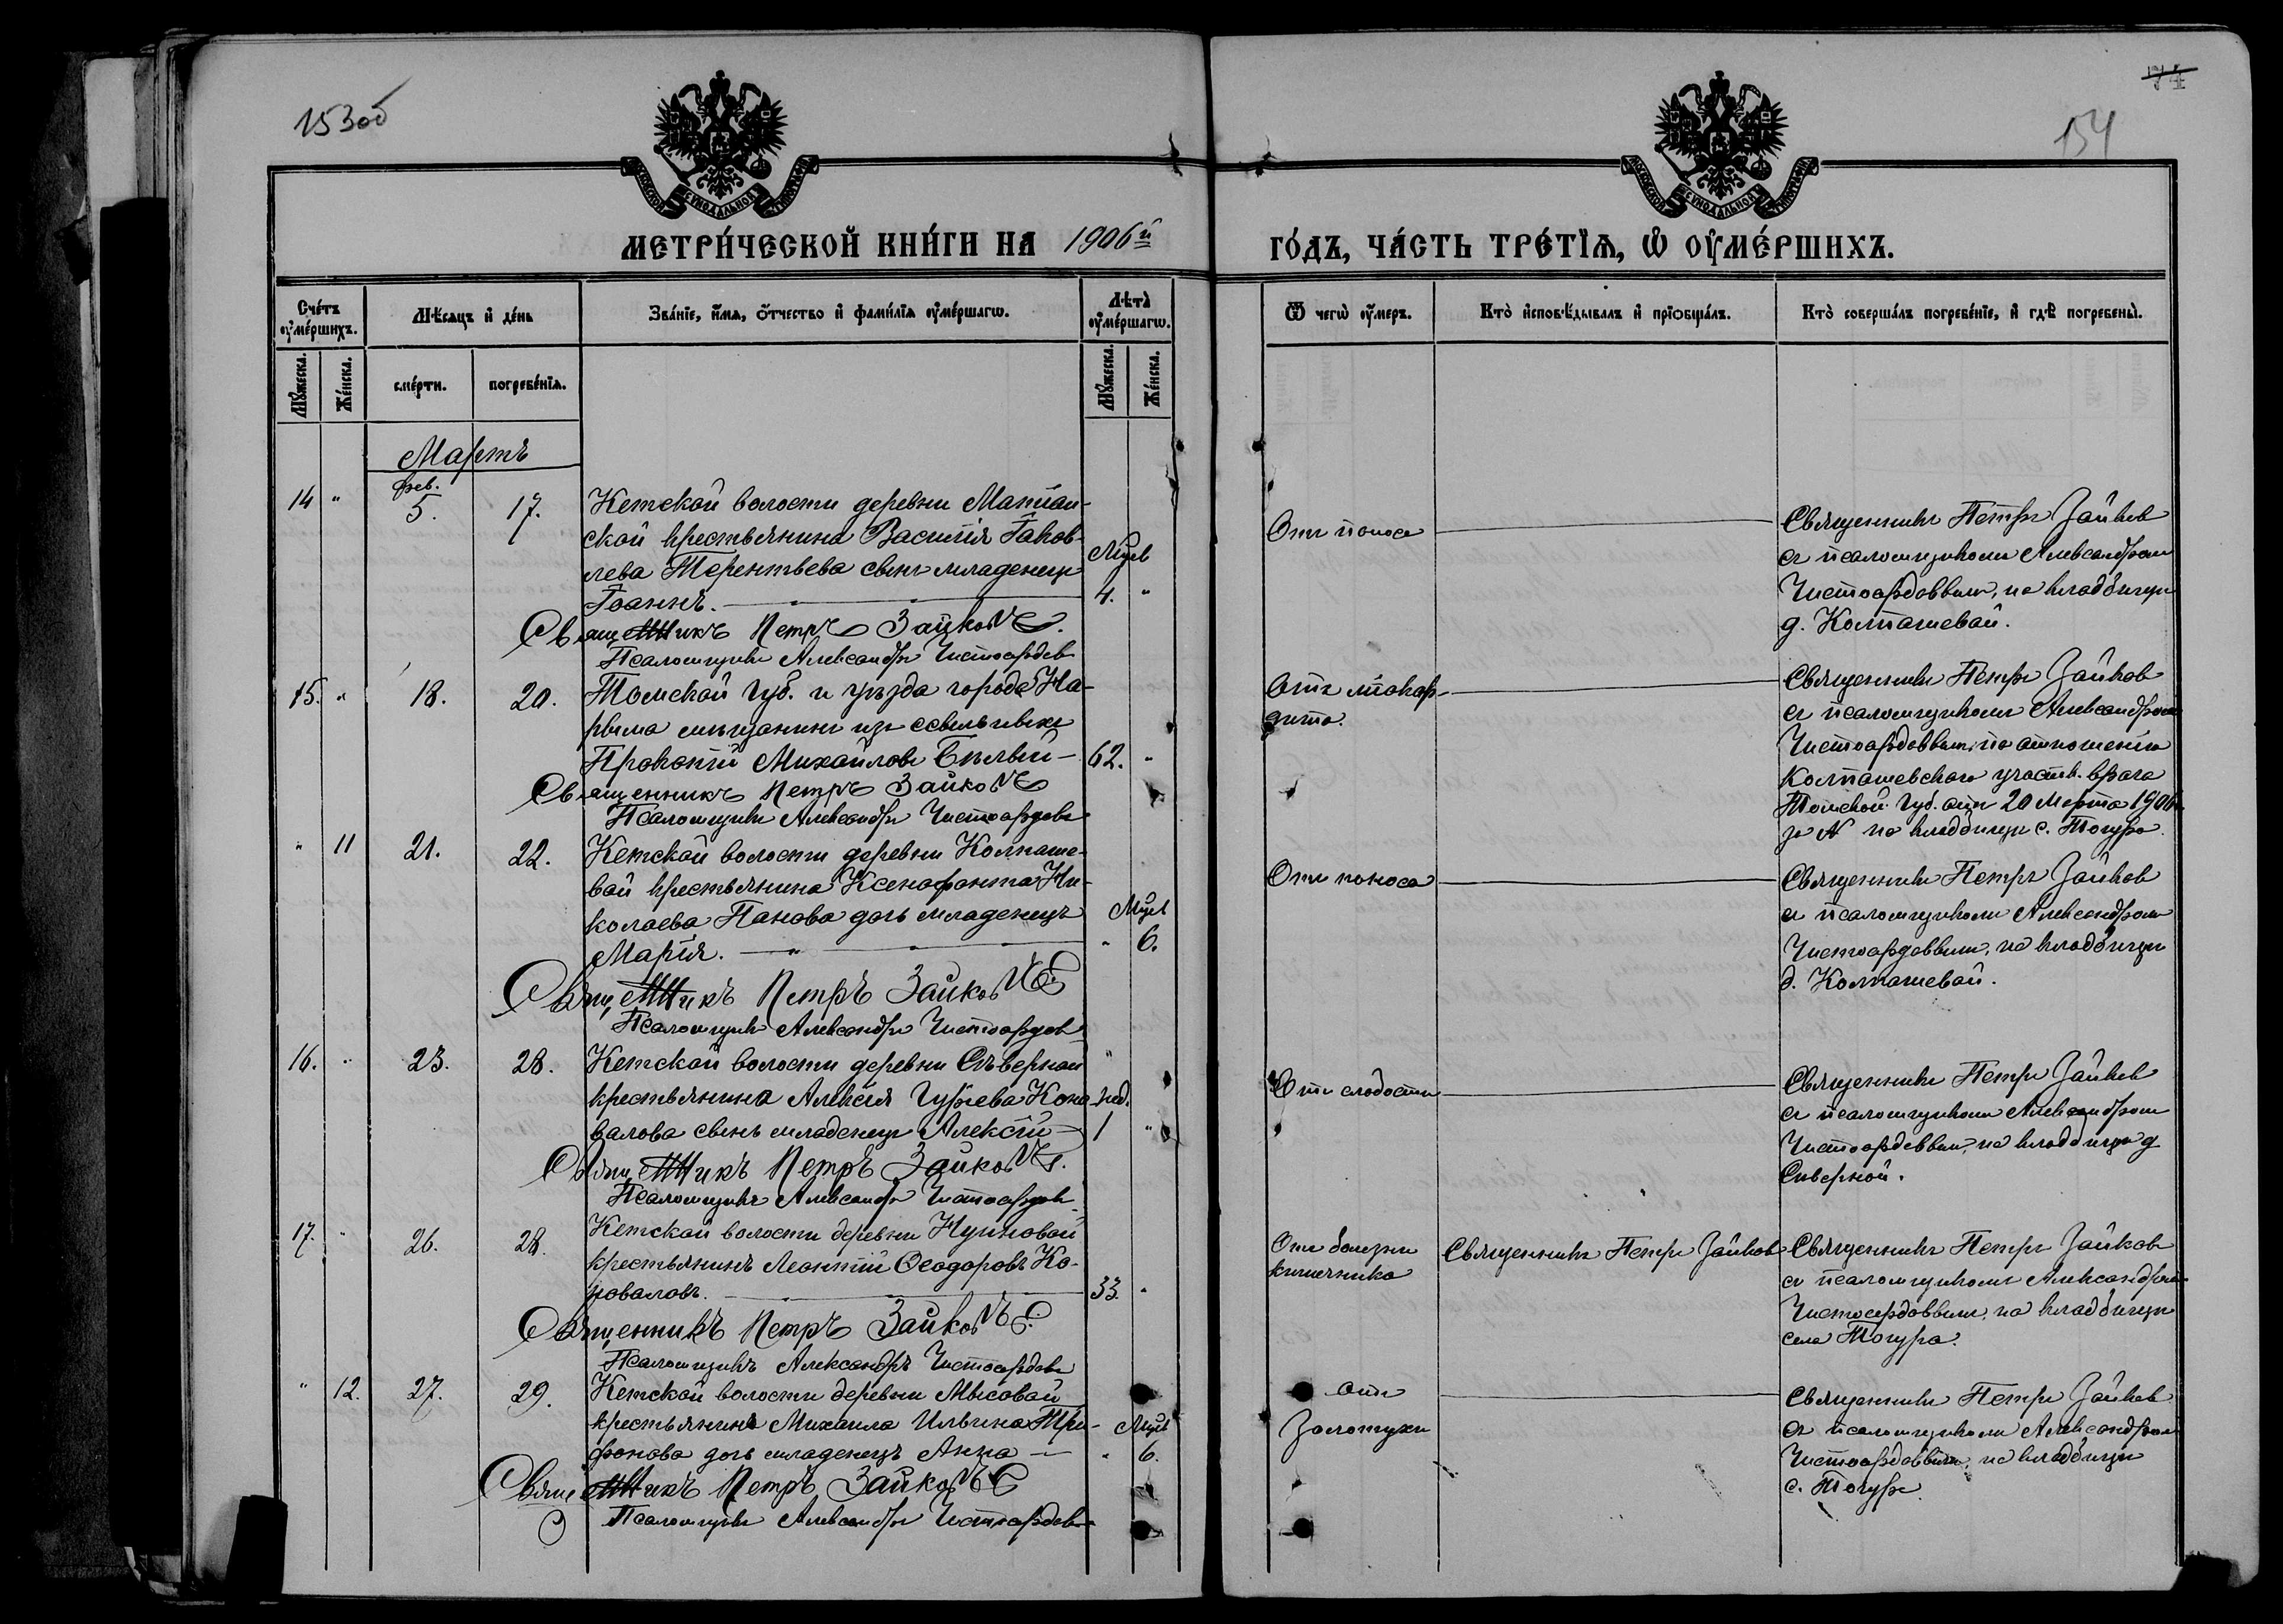 153об
74
154
МОСКОВСКОЙ СУНОДАЛЬНОЙ ТИПОГРАФІИ
МОСКОВСКОЙ СУНОДАЛЬНОЙ ТИПОГРАФІИ
МЕТРИ́ЧЕСКОЙ КНИ́ГИ НА 1906й
ГО́ДЪ, ЧА́СТЬ ТРЕ́ТІѦ, Ѽ ОУ҆МЕ́РШИХЪ.
Сче́тъ оу҆ме́ршихъ.
Мѣ́сѧцъ и҆ де́нь
Зва́нїе, и҆́мѧ, ѻ҆́тчество и҆ фами́лїѧ оу҆ме́ршагѡ.
Лѣ́та оу҆ме́ршагѡ.
Ѿ чегѡ̀ оу҆́меръ.
Кто̀ и҆сповѣ́дывалъ и҆ прїѡбща́лъ.
Кто̀ соверша́лъ погребе́нїе, и҆ гдѣ̀ погребены̀.
Мꙋ́жеска.
Же́нска.
сме́рти.
погребе́нїѧ.
Мꙋ́жеска.
Же́нска.
Мартъ
14 " фев. 5. 17.
Кетской волости деревни
ской крестьянина Василія Іаков-
лева Терентьева сынъ младенецъ
Іоаннъ. — " —
Мцев
4. "
Священникъ Петръ Зайковъ.
Псаломщикъ Александръ Чистосердов
От поноса
Священникъ Петръ Зайков
съ псаломщикомъ Александром
Чистосердовым, на кладбищи
д. Колпашевой.
15. " 18. 20.
Томской Губ. и уѣзда города На-
рыма мещанинъ из ссыльныхъ
Прокопій Михайловъ Бѣлый — 62. "
Священникъ Петръ Зайковъ
Псаломщикъ Александръ Чистосердовъ
Отъ міокар-
дита.
Священникъ Петръ Зайков
съ псаломщикомъ Александром
Чистосердовым, по отношенію
Колпашевского участк. врача
Томской Губ. от 20 Марта 1906
за № на кладбищи с. Тогура.
" 11 21. 22.
Кетской волости деревни Колпаше-
вой крестьянина Ксенофонта Ни-
колаева Панова дочь младенецъ
Марія. — " —
Мцев
" 6.
Священникъ Петръ Зайковъ
Псаломщикъ Александръ Чистосердов
От поноса
Священникъ Петръ Зайков
съ псаломщиком Александром
Чистосердовым, на кладбищи
д. Колпашевой.
16. " 23. 28.
Кетской волости деревни Сѣверной
крестьянина Алексія Гурьева Коно-
валова сынъ младенецъ Алексій —
нед.
1 "
Священникъ Петръ Зайковъ.
Псаломщикъ Александръ Чистосердов
От слабости
Священникъ Петръ Зайков
съ псаломщиком Александром
Чистосердовым, на кладбищи д
Сиверной.
17. " 26. 28.
Кетской волости деревни
крестьянинъ Леонтій Ѳеодоровъ Ко-
новаловъ. —
33. "
Священникъ Петръ Зайковъ.
Псаломщикъ Александръ Чистосердовъ
От болезни
кишечника
Священникъ Петръ Зайков
Священникъ Петръ Зайков
съ псаломщикомъ Александром
Чистосердовым, на кладбищи
села Тогура.
" 12. 27. 29.
Кетской волости деревни Мысовой
крестьянина Михаила Ильина Три-
фонова дочь младенецъ Анна —
Мцев
" 6.
Священникъ Петръ Зайковъ
Псаломщикъ Александръ Чистосердовъ
От
Золотухи
Священникъ Петръ Зайков
съ псаломщиком Александром
Чистосердовым, на кладбищи
с. Тогура.